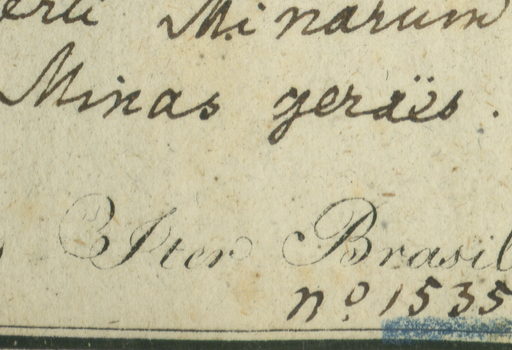 Minarum
Minas geraës.
Iter Brasil
nº 1535